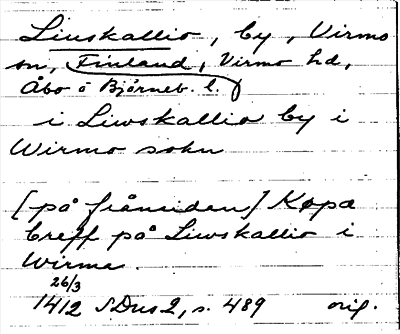 Liuskallio, by, Virmo
sn, Finland, Virmo hd,
Åbo o Björneb. l.
i Liwskallio by i
Wirmo sokn
[på frånsidan] Köpa
breff på Liwskallio i
Wirmo.
26/3
1412 SDns 2, s. 489 orig.